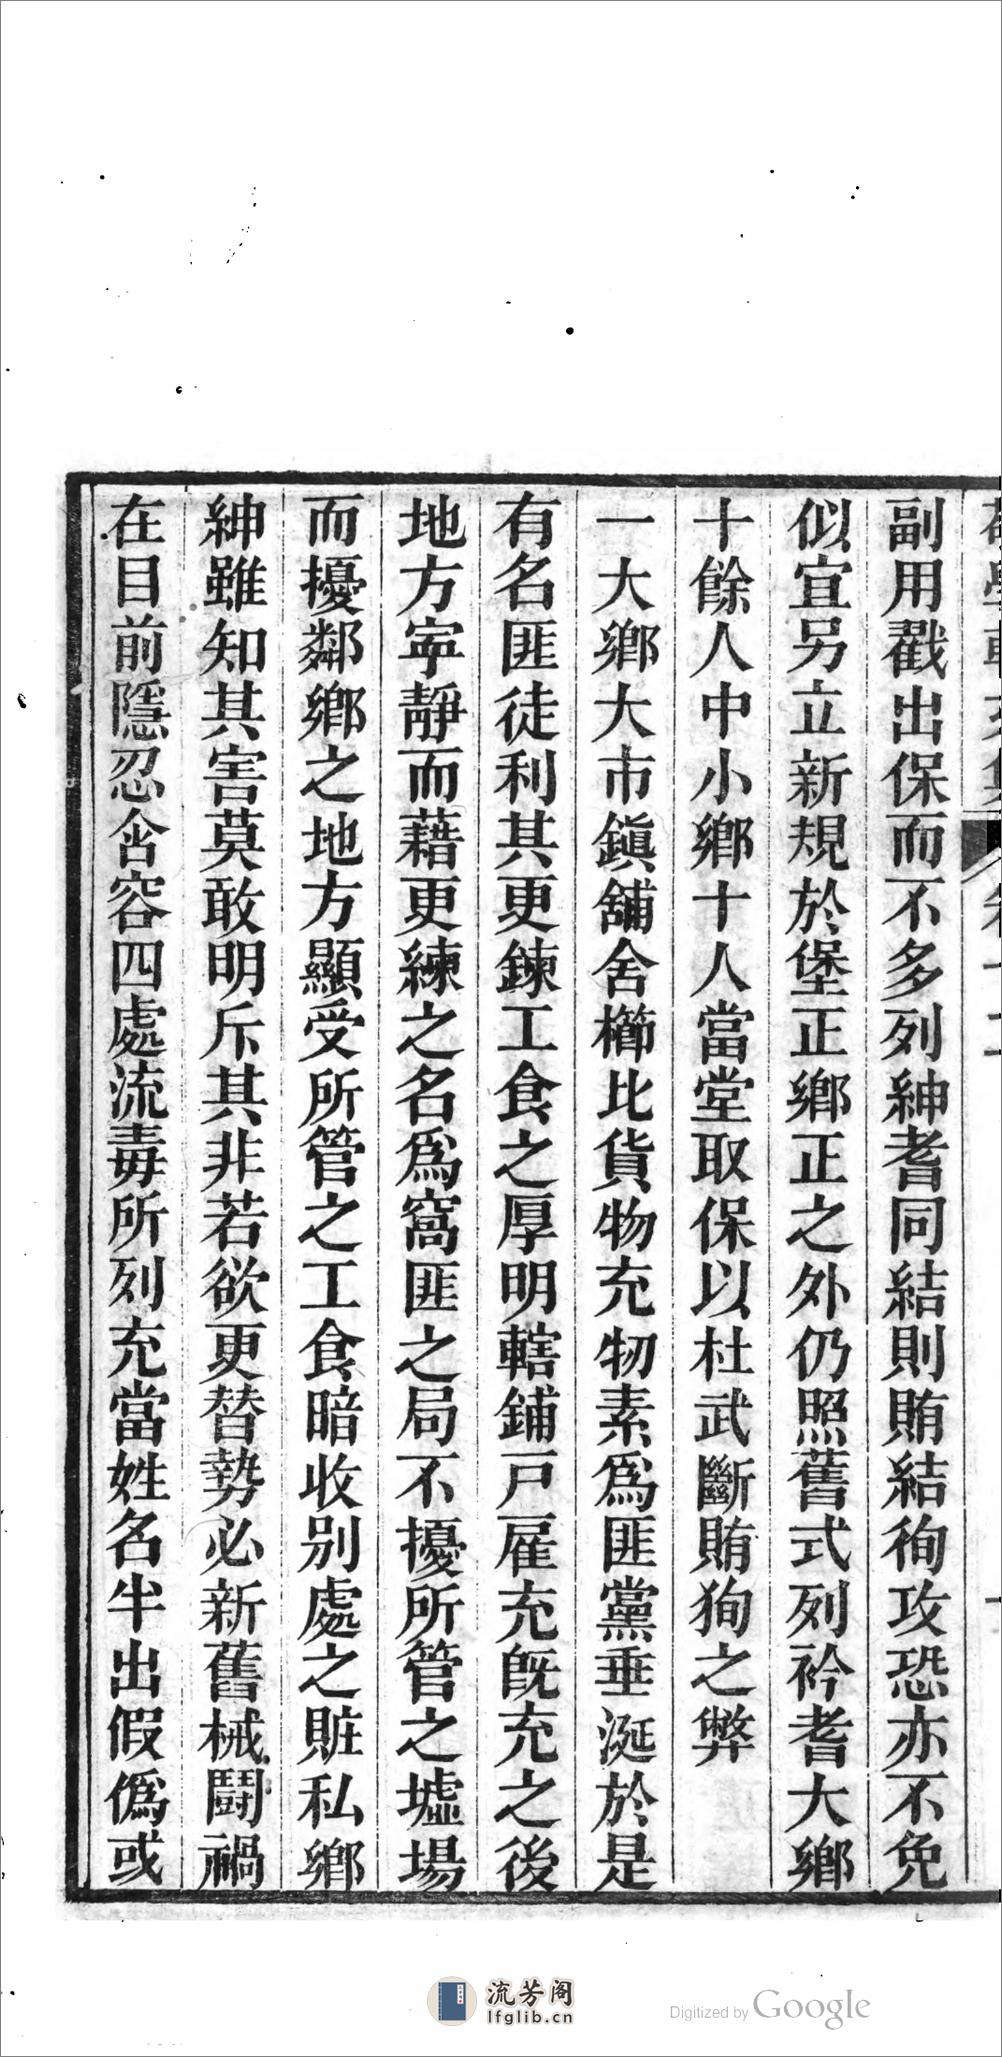 副用戳出保而不多列紳耆同結則賄結徇攻恐亦不免
似宜另立新規於堡正鄉正之外仍照舊式列衿耆大鄉
十餘人中小鄉十人當堂取保以杜武斷賄狥之弊
一大鄉大市鎭舖舍櫛比貨物充牣素爲匪黨垂涎於是
有名匪徒利其更鍊工食之厚明轄鋪戸雇充旣充之後
地方寜靜而藉更練之名爲窩匪之局不擾所管之墟場
而擾鄰鄉之地方顯受所管之工食暗收别處之賍私鄉
紳雖知其害莫敢明斥其非若欲更替勢必新舊械鬪禍
在目前隱忍含容四處流毒所列充當姓名半出假僞或
流芳阁
lfglib.cn
Digitized by Google